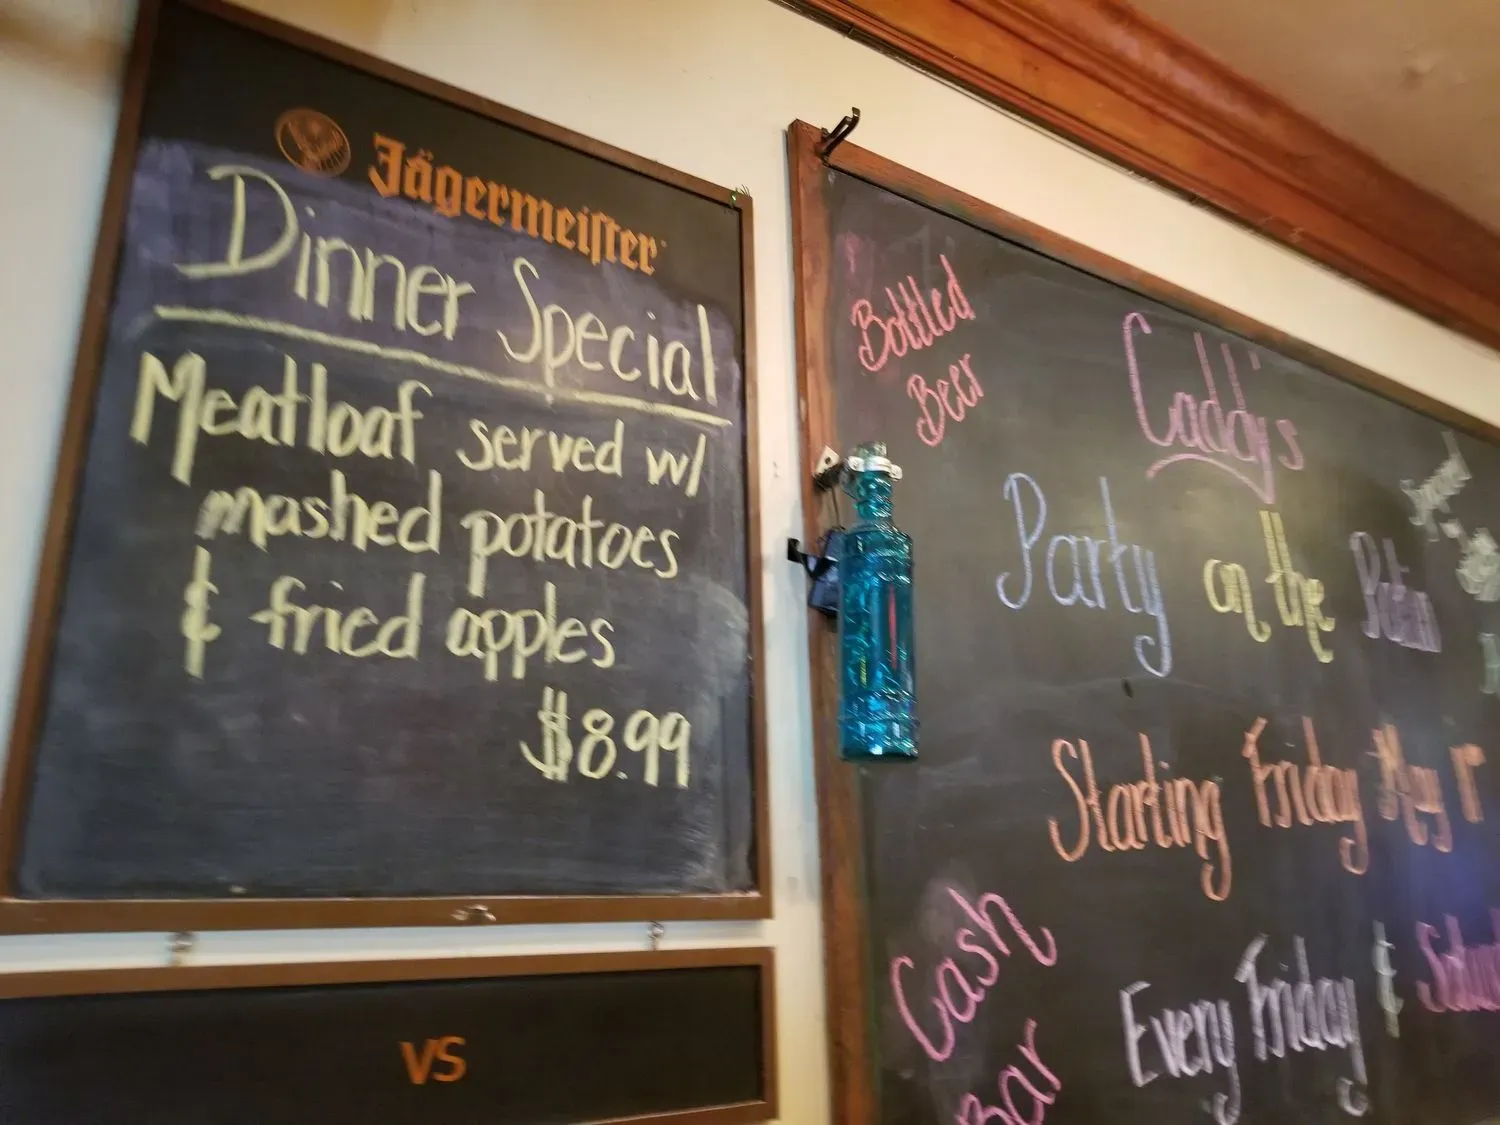 Jägermeister
Dinner Special
Meatloaf served w/
mashed potatoes
& fried apples
$8.99
VS
Bottled
Beer
Caddy's
Party on the
Starting Friday May 1st
Every Friday &
Cash
Bar